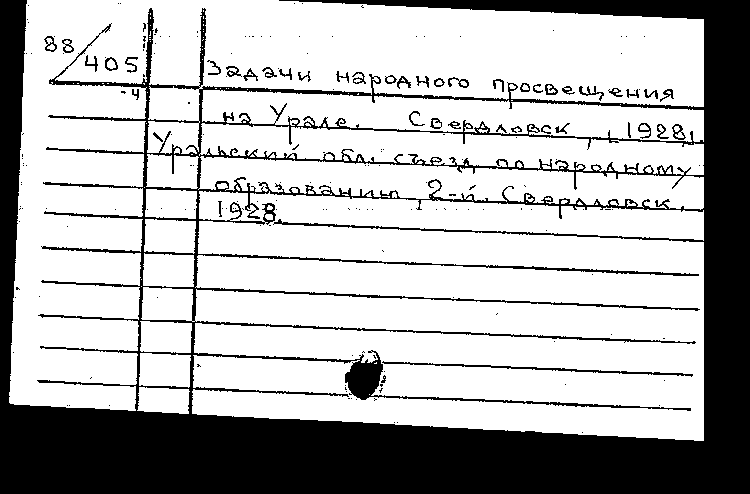 88/405
-4
Задачи народного просвещения
на Урале. Свердловск, [1928].
Уральский обл. съезд по народному
образованию, 2-й. Свердловск,
1928.